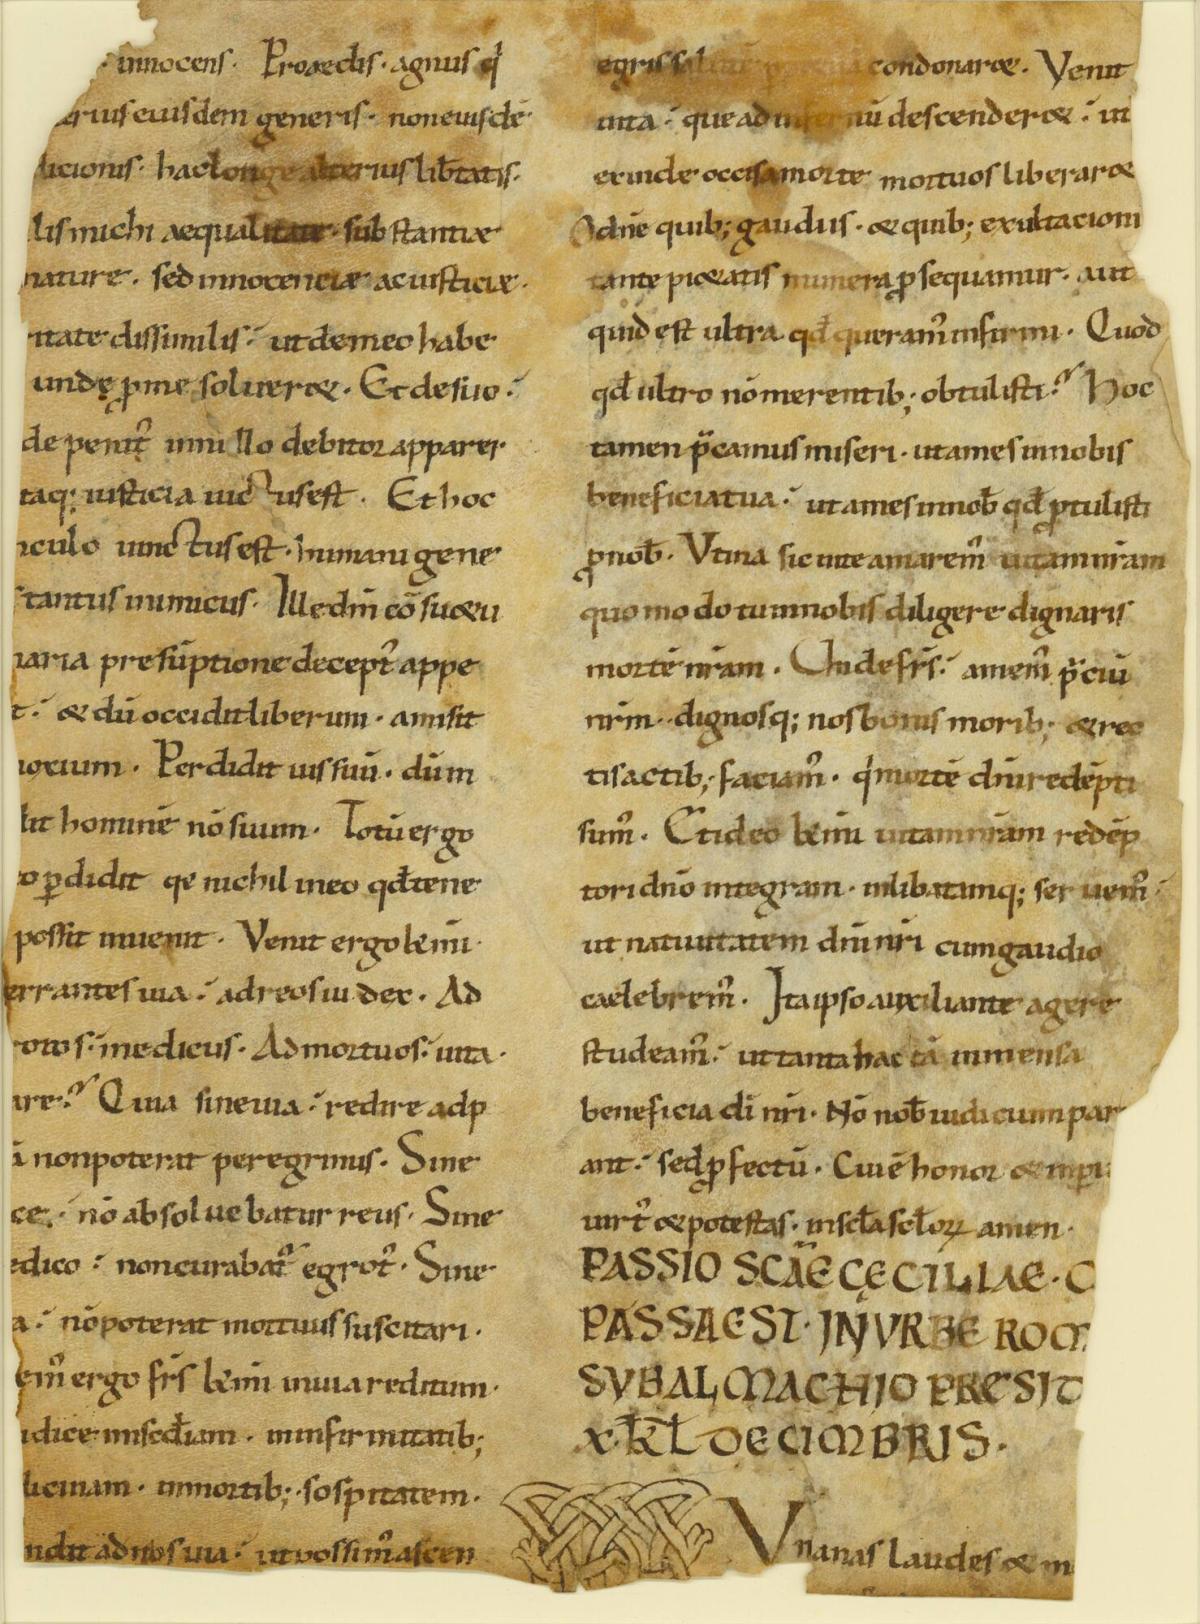 innocens. Procedis. agnus q̄d
eriuseiusdem generis. noneiusdē
dicionis. haclonge alterius lib̄tatis.
lis michi aequalitate. substantiæ
nature. sed innocenciæ aciusticiæ.
ritate dissimilis. ut demeo habe
undę p̱me soluer&. Et desuo.
de penit̄ inillo debitor apparer
taq; iusticia uictus est. Et hoc
nculo uinctus est. humani gene
tantus inimicus. Ille dm̄ cō su&u
naria presūptione decept̄ appe
t. & dū occidit liberum. amisit
noxium. Perdidit uissuū. dūm
dit hominē nō suum. Totū ergo
p̱didit qe nichil ineo qd̄ tene
possit inuenit. Venit ergo k̄mi.
errantes uia. adreos iudex. Ad
medicus. Ad mortuos. uita.
are. Quia sineuia. redire adp
ā nonpoterat peregrinus. Sine
ce. nō absoluebatur reus. Sine
edico. noncurabat̄ egrot̄. Sine
a. nō poterat mortuus suscitari.
em̄ ergo fr̄s k̄mi inuia reditum.
udice miscd̄iam. ininfirmitatib;
dicinam. inmortib; sospitatem.
ndit ad nos uia. ut possim̄ ascen
egris condonar&. Venit
uita. que ad nū descender&. ut
exinde occisa morte mortuos liberar&
O dn̄e quib; gaudiis. & quib; exultacioni
tante pi&atis munera p̱sequamur. aut
quid est ultra. qd̄ queram̄ infirmi. Quod
qd̄ ultro nō merentib; obtulisti. Hoc
tamen p̄camus miseri. ut ames innobis
beneficia tua. ut ames innob̄ qd̄ p̱tulisti
p̱nob̄. Vtina sic inte amarem̄ uitam nr̄am
quomodo tu innobis diligere dignaris
mortē nr̄am. Unde fr̄s. amem̄ p̄ciū
nr̄m. dignosq; nos bonis morib; & rec
tis actib; faciam̄. q̇ mortē dn̄i redēpti
sum̄. Et ideo k̄mi uitam nr̄am redēp
tori dn̄o integram. inlibatamq; seruem̄.
ut natiuitatem dn̄i nr̄i cum gaudio
caelebrem̄. Ita ipso auxiliante agere
studeam̄. ut tanta hac tā inmensa
beneficia dī nr̄i. Nō nob̄ iudicium par
ant. sed p̱fectū. Cui ē honor & inp̱i
uirt̄ & potestas. inscl̄a scl̄oꝝ amen.
PASSIO SCÆ CĘCILIAE. Q
PASSA EST. IN VRBE ROM
SVB ALMACHIO PRESID
X. KL̄ DECIMBRIS.
Vmanas laudes & m